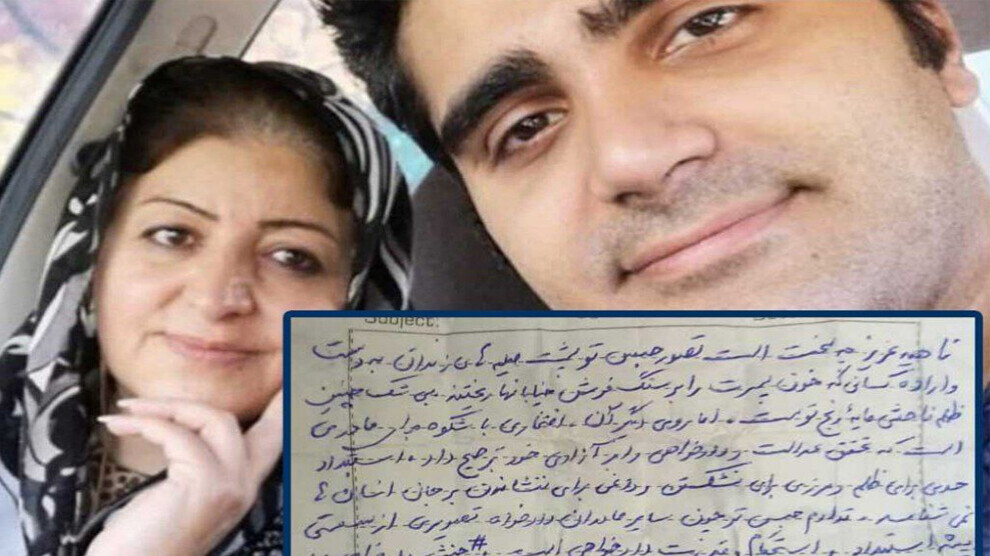 Subject:
ناهید عزیز چه سخت است تصور حبس تو پشت میله های زندان به دست
و اراده کسانی که خون پسرت را بر سنگ فرش خیابانها ریختند. بی شک چنین
ظلم فاحشی مایهٔ رنج توست، اما روی دیگر آن، افتخاری با شکوه برای مادری
است که تحقق عدالت و دادخواهی را بر آزادی خود ترجیح داد. استبداد
حدی برای ظلم و مرزی برای شکستن و داغی برای ننشاندن بر جان انسان ها
نمی شناسد. تداوم حبس تو چون سایر مادران دادخواه تصویری از
استبداد و استحکام دادخواهی است. #